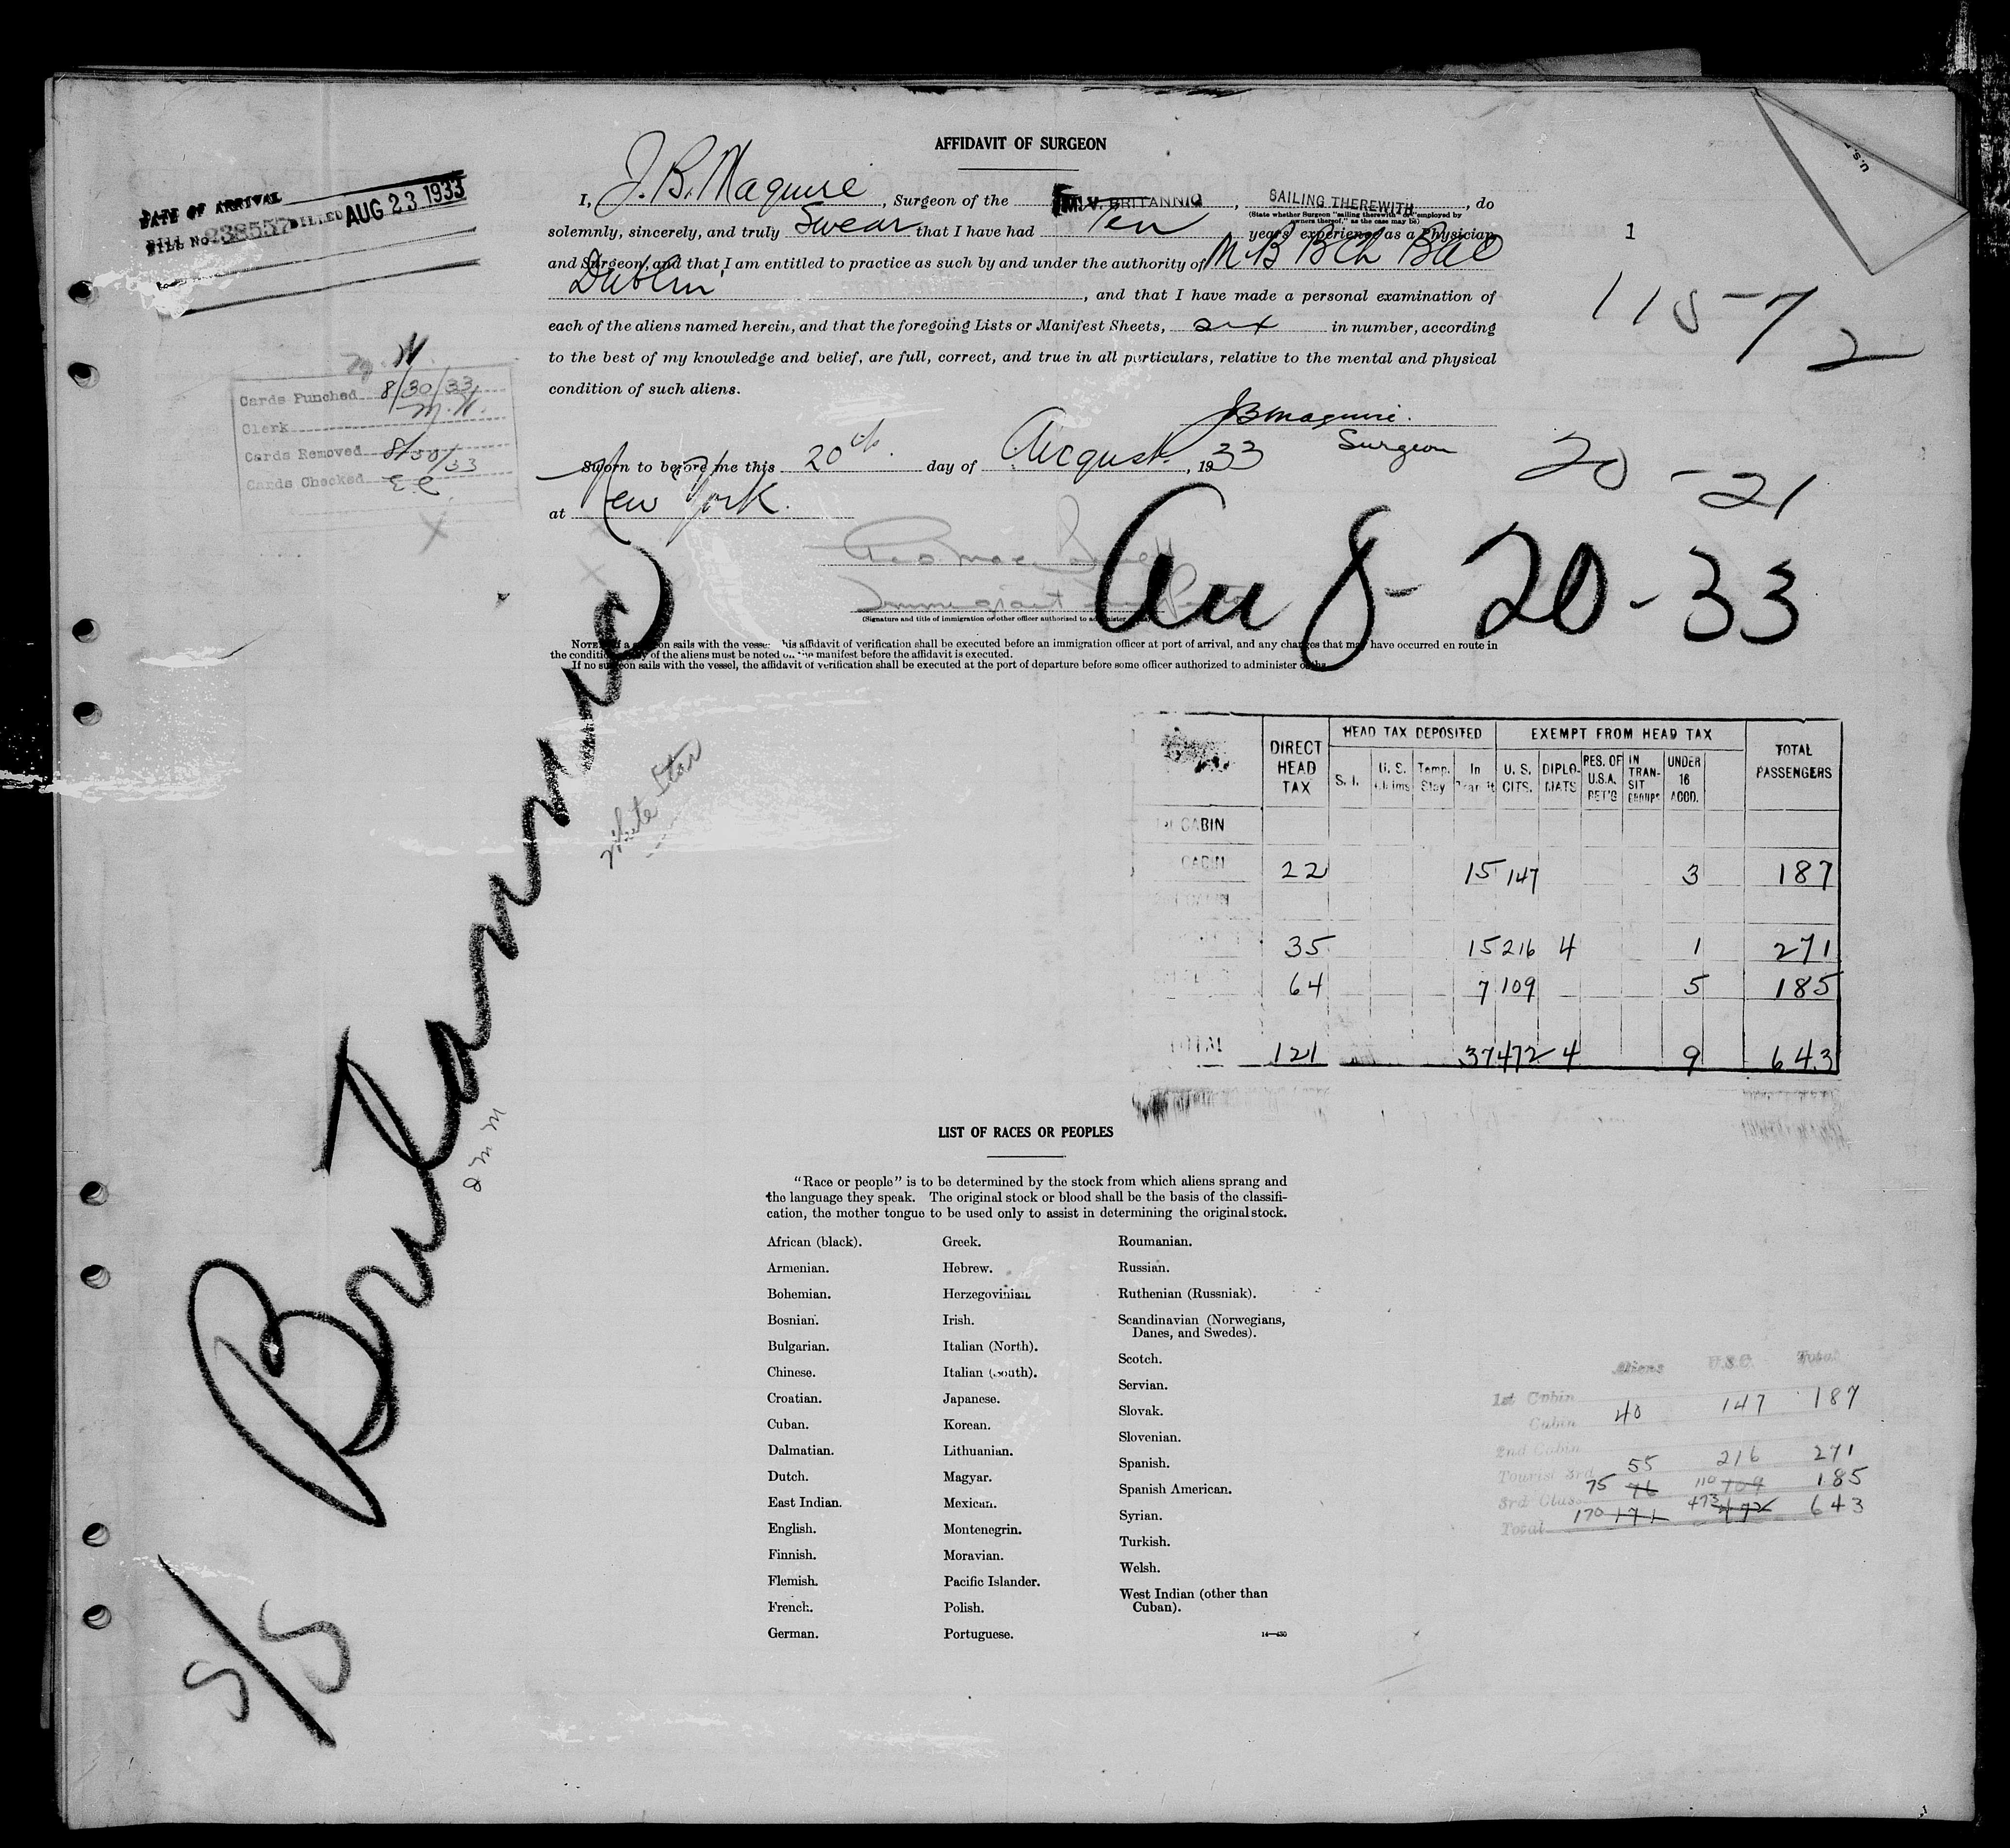 AFFIDAVIT OF SURGEON
DATE OF ARRIVAL
BILL No. 238557 BILLED AUG 23 1933
I, J. B. Maguire, Surgeon of the M.V. BRITANNIC, SAILING THEREWITH, do
(State whether Surgeon "sailing therewith" or "employed by owners thereof," as the case may be)
solemnly, sincerely, and truly Swear that I have had Ten years' experience as a Physician
and Surgeon, and that I am entitled to practice as such by and under the authority of M.B Bch
Dublin, and that I have made a personal examination of
each of the aliens named herein, and that the foregoing Lists or Manifest Sheets, six in number, according
to the best of my knowledge and belief, are full, correct, and true in all particulars, relative to the mental and physical
condition of such aliens.
1
2
JBMaguire.
Surgeon
Sworn to before me this 20th day of August, 1933
at New York.
20-21
Cards Punched 8/30/33
Clerk M.W.
Cards Removed 8/30/33
Cards Checked E.C.
X
Au 8-20-33
(Signature and title of immigration or other officer authorized to administer
NOTE.—If a surgeon sails with the vessel this affidavit of verification shall be executed before an immigration officer at port of arrival, and any changes that may have occurred en route in
the condition of any of the aliens must be noted on the manifest before the affidavit is executed.
If no surgeon sails with the vessel, the affidavit of verification shall be executed at the port of departure before some officer authorized to administer oaths.
Britannic
White Star
S/S
DIRECT HEAD TAX
HEAD TAX DEPOSITED
EXEMPT FROM HEAD TAX
TOTAL PASSENGERS
S. I. U. S. Claims Temp. Stay In Transit U. S. CITS. DIPLO-MATS RES. OF U.S.A. RET'G IN TRAN-SIT GROUPS UNDER 16 ACOD.
CABIN
CABIN 22 15 147 3 187
35 15 216 4 1 271
64 7 109 5 185
TOTAL 121 37 472 4 9 643
LIST OF RACES OR PEOPLES
"Race or people" is to be determined by the stock from which aliens sprang and
the language they speak. The original stock or blood shall be the basis of the classifi-
cation, the mother tongue to be used only to assist in determining the original stock.
African (black).
Armenian.
Bohemian.
Bosnian.
Bulgarian.
Chinese.
Croatian.
Cuban.
Dalmatian.
Dutch.
East Indian.
English.
Finnish.
Flemish.
French.
German.
Greek.
Hebrew.
Herzegovinian.
Irish.
Italian (North).
Italian (South).
Japanese.
Korean.
Lithuanian.
Magyar.
Mexican.
Montenegrin.
Moravian.
Pacific Islander.
Polish.
Portuguese.
Roumanian.
Russian.
Ruthenian (Russniak).
Scandinavian (Norwegians,
Danes, and Swedes).
Scotch.
Servian.
Slovak.
Slovenian.
Spanish.
Spanish American.
Syrian.
Turkish.
Welsh.
West Indian (other than
Cuban).
14—430
Aliens U.S.C. Total
1st Cabin
Cabin 40 147 187
2nd Cabin
Tourist 3rd 55 216 271
3rd Class 75 76 110 109 185
Total 170 171 473 472 643